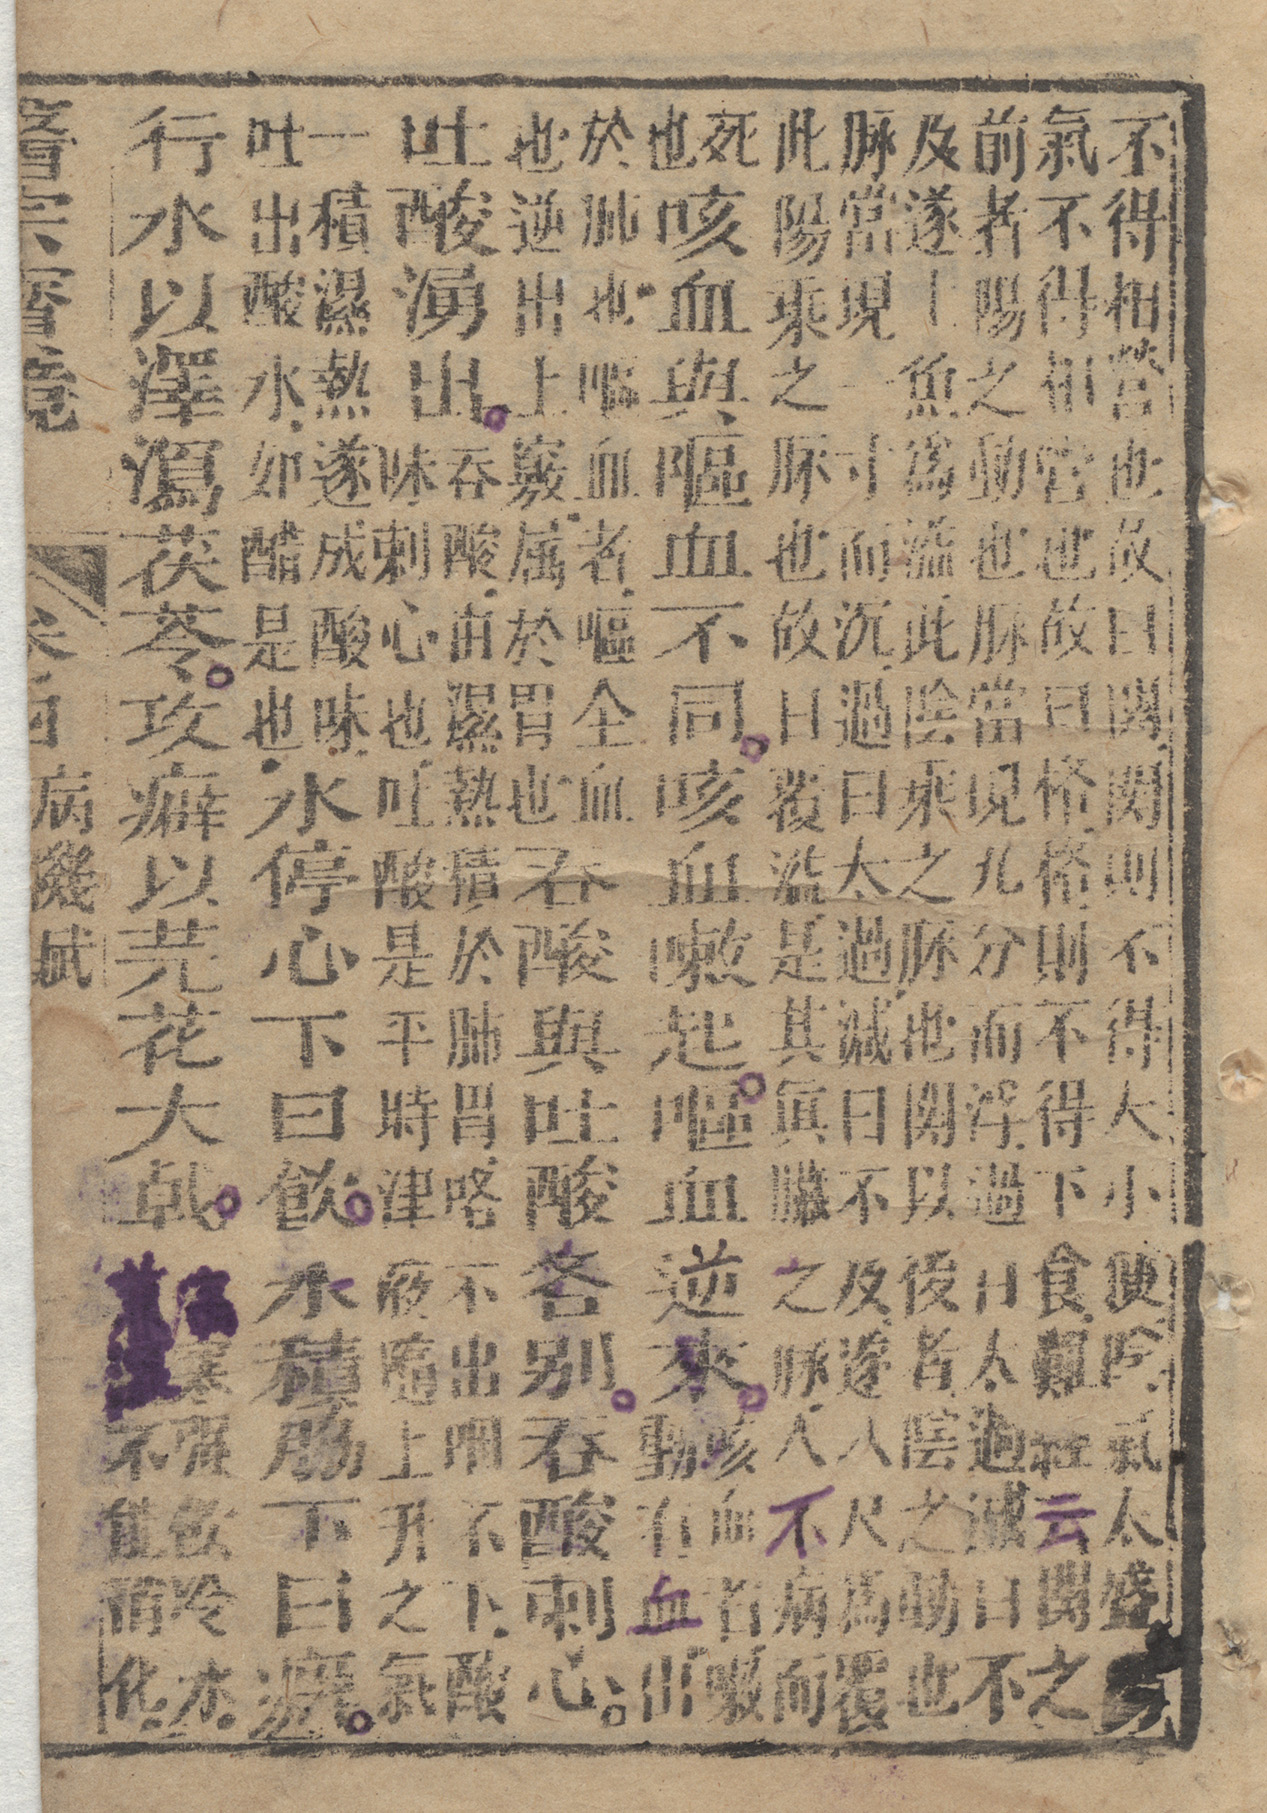 不得相營也故曰關關則不得大小便陰氣太盛
氣不得相營也故曰格格則不得下食難經云關之
前者陽之動也脉當現九分而浮過曰太過減曰不
及遂上魚爲溢此陰乘之脉也關以後者陰之動也
脉當現一寸而沉過曰太過減曰不及遂入尺爲覆
此陽乘之脉也故曰覆溢是其眞臟之脉人不病而
死
也
咳血與嘔血不同咳血嗽起嘔血逆來
咳血者嗽
動有血出
於肺也嘔血者嘔全血
也逆出上竅属於胃也
吞酸與吐酸各別吞酸刺心
吐酸湧出
吞酸由濕熱積於肺胃咯不出咽不下酸
味刺心也吐酸是平時津液隨上升之氣
一積濕熱遂成酸味
吐出酸水如醋是也
水停心下曰飲水積脇下曰癖
行水以澤瀉茯苓攻癖以芫花大戟
寒涎飲冷水
不能消化
醫宗寶鏡 卷四 病機賦